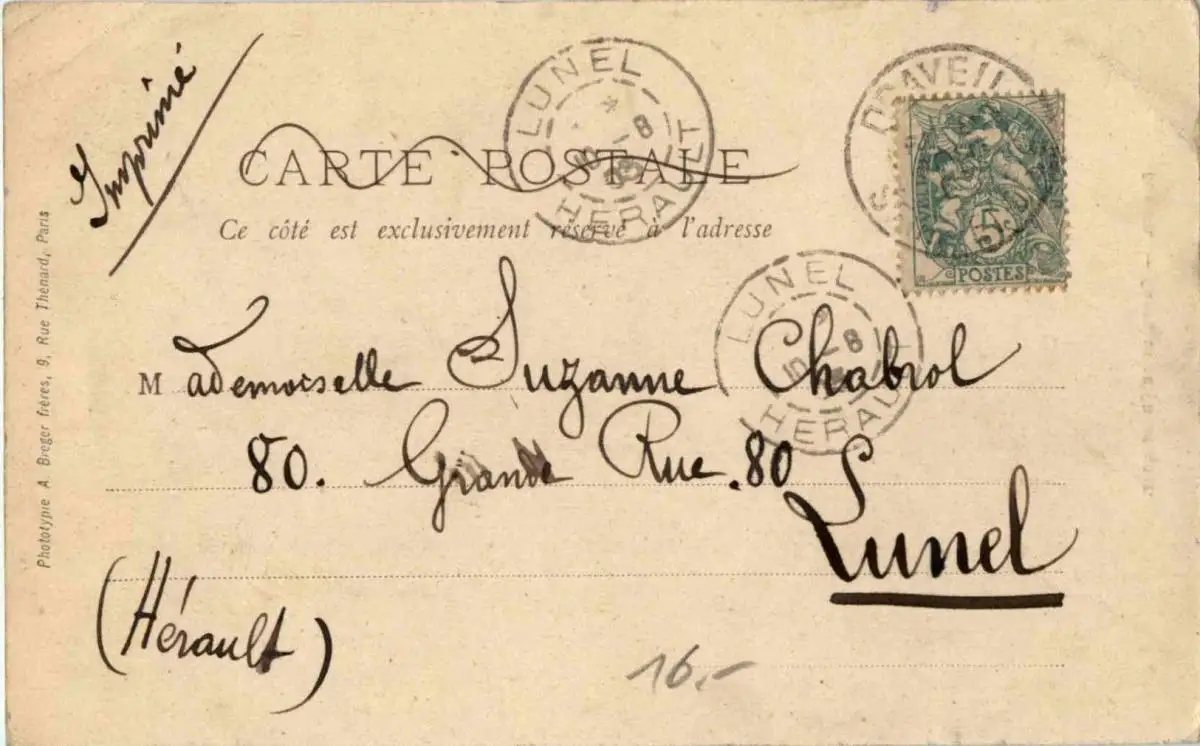 Imprimé
LUNEL
HERAULT
DRAVEIL
CARTE POSTALE
Ce côté est exclusivement réservé à l'adresse
5
POSTES
LUNEL
10 - 8
HERAULT
Mademoiselle Suzanne Chabrol
80. Grande Rue. 80
Lunel
(Hérault)
16.-
Phototypie A. Breger frères, 9, Rue Thénard, Paris